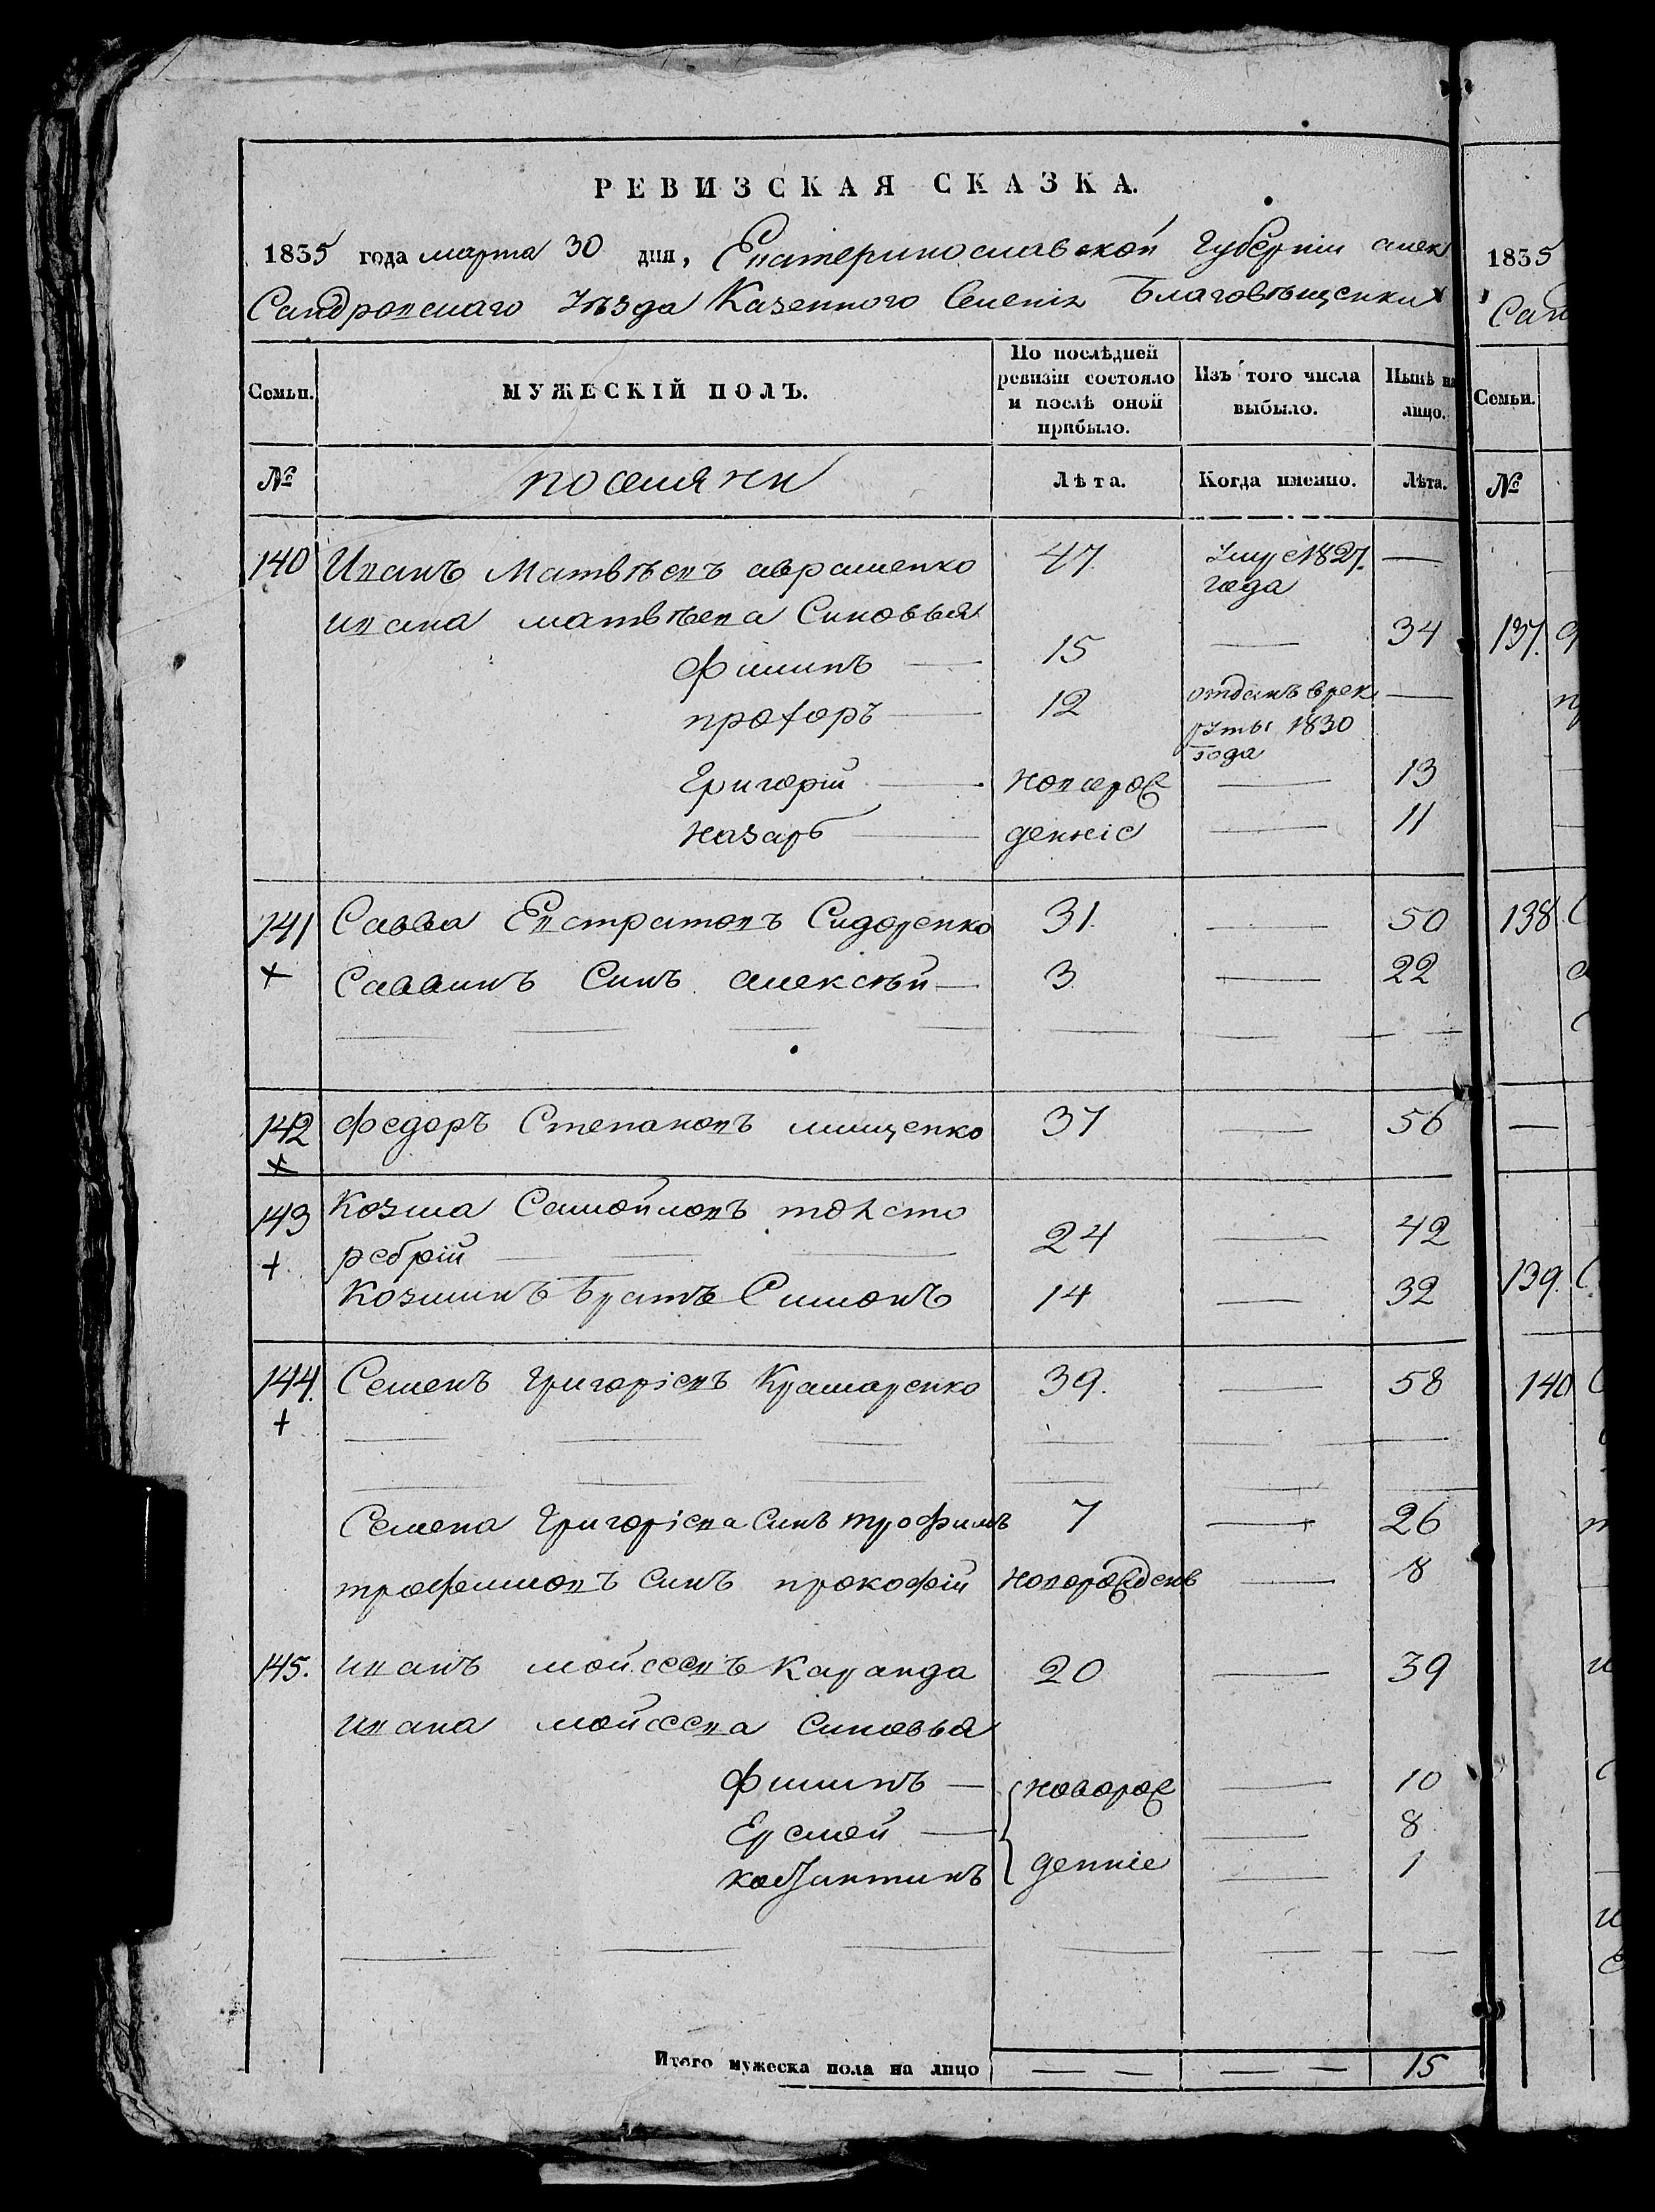 РЕВИЗСКАЯ СКАЗКА.
1835 года марта 30 дня, Екатеринославской Губерніи алек
Сандровскаго Уѣзда Казенного Селенія Благовѣщенки
Семьи. МУЖЕСКІЙ ПОЛЪ. По послѣдней ревизіи состояло и послѣ оной прибыло. Изъ того числа выбыло. Нынѣ на лицо.
№ поселяни Лѣта. Когда именно. Лѣта.
140 Иванъ Матвѣевъ авраменко 47 умре 1827. года —
ивана матвѣева Синовья
филипъ — 15 — 34
прохоръ — 12 отданъ в рек руты 1830 года —
Григорій — новорож — 13
назаръ — денніе — 11
141 Савва Евстратовъ Сидоренко 31. — 50
+ Саввинъ Синъ алексѣй — 3 — 22
142 федоръ Степановъ мищенко 37 — 56
+
143 Козма Самойловъ толсто
+ ребрій — 24 — 42
Козминъ братъ Симонъ 14 — 32
144. Семенъ Григоріевъ Крамаренко 39. — 58
+
Семена Григоріева Синъ трофимъ 7 — 26
трофимовъ синъ прокофій новорожденъ — 8
145. иванъ мойсеевъ Каранда 20 — 39
ивана мойсеева синовья
филипъ — новорож — 10
Еремей — — 8
костянтинъ денніе — 1
Итого мужеска пола на лицо — — — — 15
1835
Сан
Семьи.
№
137.
138
139.
140